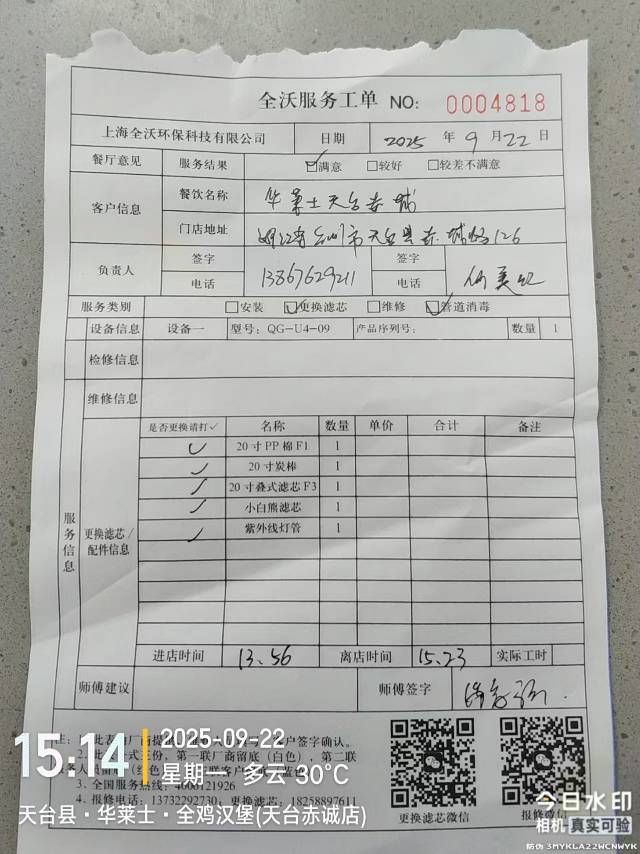 全沃服务工单 NO: 0004818
上海全沃环保科技有限公司 日期 2025 年 9 月 22 日
餐厅意见 服务结果 ☑满意 □较好 □较差不满意
客户信息 餐饮名称 华莱士天台赤城
门店地址 浙江省台州市天台县赤城路126
负责人 签字 签字
电话 13867629211 电话
服务类别 □安装 ☑更换滤芯 □维修 ☑管道消毒
设备信息 设备一 型号: QG-U4-09 产品序列号: 数量 1
检修信息
维修信息
服务信息
更换滤芯/配件信息
是否更换请打✓ 名称 数量 单价 合计 备注
✓ 20寸PP棉F1 1
✓ 20寸炭棒 1
✓ 20寸叠式滤芯F3 1
✓ 小白熊滤芯 1
✓ 紫外线灯管 1
进店时间 13.56 离店时间 15.23 实际工时
师傅建议 师傅签字
签字确认。
第一联厂商留底（白色），第二联
3. 全国服务热线: 4008121926
4. 报修电话: 13732292730、18258897611
更换滤芯微信 报修微信
15.14
2025-09-22
星期一 多云 30°C
天台县·华莱士·全鸡汉堡(天台赤诚店)
今日水印
相机 真实可验
防伪 3MYKLA22WCNWYK